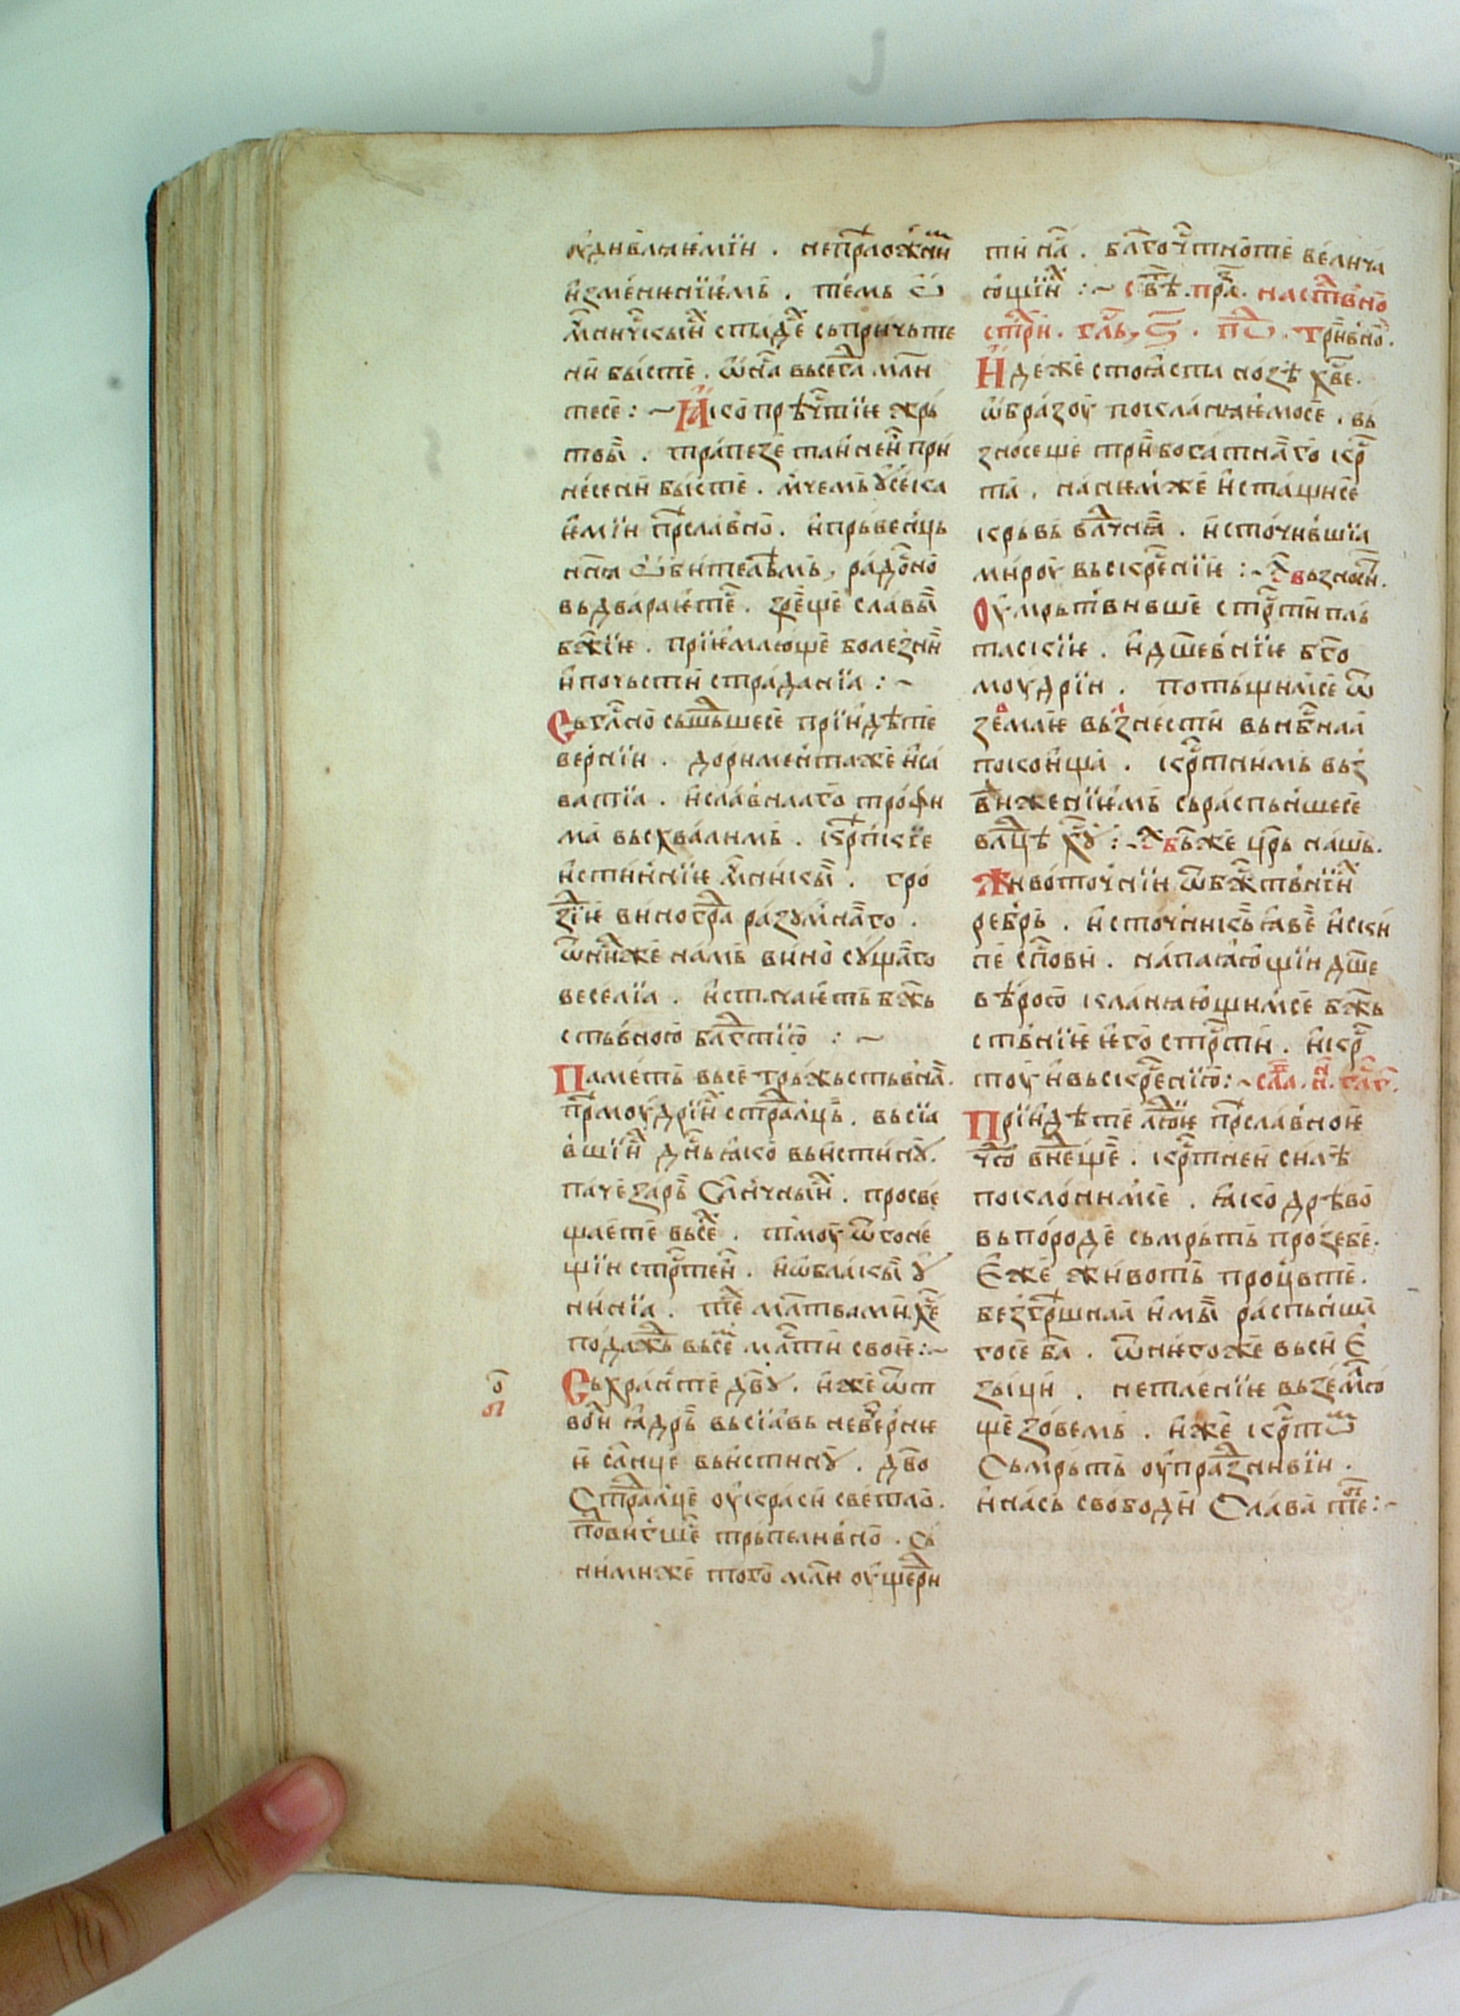 оудивлꙗемїи . непрⷭ҇ложнⷨ҇ нⷨ҇и
измѣненїемь . тѣмь ѿ
мⷱ҇нчкыиⷯ стадеⷯ сьпричьте
ни бисте . ѡн҃а всегда мл҃и
тесе : ~ Ꙗко прѣчⷭ҇тїе жрь
твы . трапезѣ таинѣи при
несени бисте . мч҃емь оусѣка
емїи прⷭ҇лавно . и прьвѣньць
нн҃ꙗ ѡбитѣлѣмь , радⷭ҇но
вьдвараете . зрѣще славы
бж҃їе . прїемлюще болезни
и почьсти страданїа : ~
Сьгл҃сно сьшⷣьшесе прїидѣте
вѣрнїи . дориментаже и са
ватїа . и славнааго трофи
ма вьсхвалимь . крѣпкїе
истин'нїе мч҃нкы . гро
здⷣїе винограⷣ разумнаго .
ѿнихже намь вино сущаго
веселїа . истачаеть бжⷭ҇ь
ствьною блгⷣтїю : ~
Паметь всетрьжьствьнаꙗ .
прⷨ҇моудрїиⷯ страⷣлць . вьсїа
вшїиⷯ дн҃ь ꙗко вьистину .
паче зарь сл҃нчныиⷯ . просвѣ
щаете вьсеⷯ . тмоу ѿгоне
щїи стрⷭ҇тен . и ѡблакы оу
нинїа . тѣⷯ мл҃твами хⷭ҇е
подажⷣь всѣⷨ мⷭ҇лти своее : ~
Сьхраните дв҃у . иже ѿт
вои ꙗдрь вьсїавь невѣчерне
е сл҃нце вьистину . дв҃о
Страⷣлце оукраси свѣтло .
подⷣвигшеⷯ трьпеливно . сь
нимиже того мл҃и оущедⷣри
ти нⷭ҇ . блг҃очⷭ҇тноте велича
ющїиⷯ : ~ свѣⷮ . прⷣа . настивно
стⷯри . глⷭ҇ь , ѕ҃ . пⷣо . три дн҃вно .
Идеже стоꙗста нозѣ хв҃ѣ .
ѡбразоу покланꙗемосе . вь
зносеще трибогатнаго крⷭ҇
та . на немже истащисе
крьвь влⷣчнаа . источившїа
мироу вьскрⷭ҇енїе : ~ Сⷯ вьзноси .
Оумрьтвившѐ стрⷭ҇ти пль
тскїе . и дш҃евнїе бг҃о
моудрїи . потьщимсе ѿ
земле вьзнести вьнбⷭ҇наа
покоища . крⷭ҇тнимь вьз
движенїемь сьраспьншесе
влⷣцѣ хⷭ҇у : ~ Сⷯ бж҃е црⷭ҇ь нашь .
Животочнїи ѿ бжⷭ҇твнїиⷯ
ребрь . источникь ꙗвѣ иски
пе сп҃сови . напаꙗющїи дш҃е
вѣрою кланꙗющимсе бжⷭ҇ь
ствнїе его стрⷭ҇ти . и крⷭ҇
тоу и вьскрⷭ҇енїю : ~ слⷡ҇а . и нн҃ . глⷭ҇ .
Прїидѣте людⷣїе прⷭ҇лавное
чюⷣ видⷣеще . крⷭ҇тнеи силѣ
поклонимсе . ꙗко дрѣво
вь породе сьмрьть прозебе .
Еже животь процвте .
безгрⷭ҇шнаа имы распьнща
госе гⷭ҇а . ѿнегоже вьси Е
зыци . нетлѣнїе вьземлю
ще зовемь . иже крⷭ҇тоⷨ
Сьмрьть оупразⷣнивїи .
и нась свободи Слава теⷠ : ~